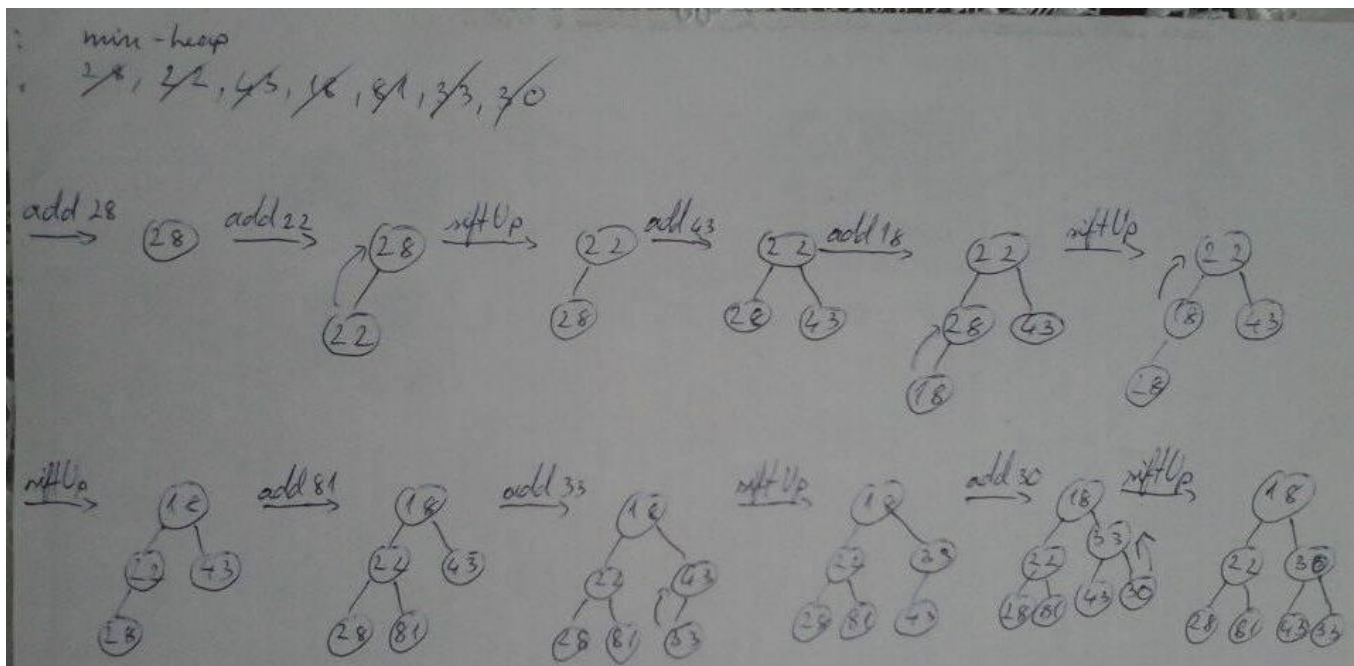 min-heap
28, 22, 43, 18, 81, 33, 30
add 28
28
add 22
28
22
siftUp
22
28
add 43
22
28 43
add 18
22
28 43
18
siftUp
22
18 43
28
siftUp
18
22 43
28
add 81
18
22 43
28 81
add 33
18
22 43
28 81 33
siftUp
18
22 33
28 81 43
add 30
18
22 33
28 81 43 30
siftUp
18
22 30
28 81 43 33